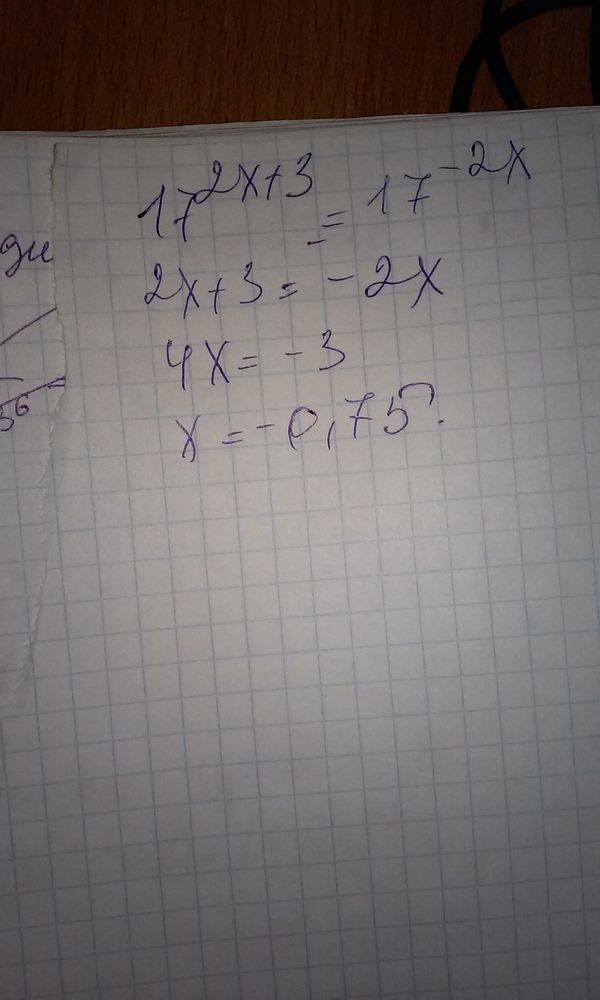 ди
5⁶
17^{2x+3} = 17^{-2x}
2x+3 = -2x
4x = -3
x = -0,75.